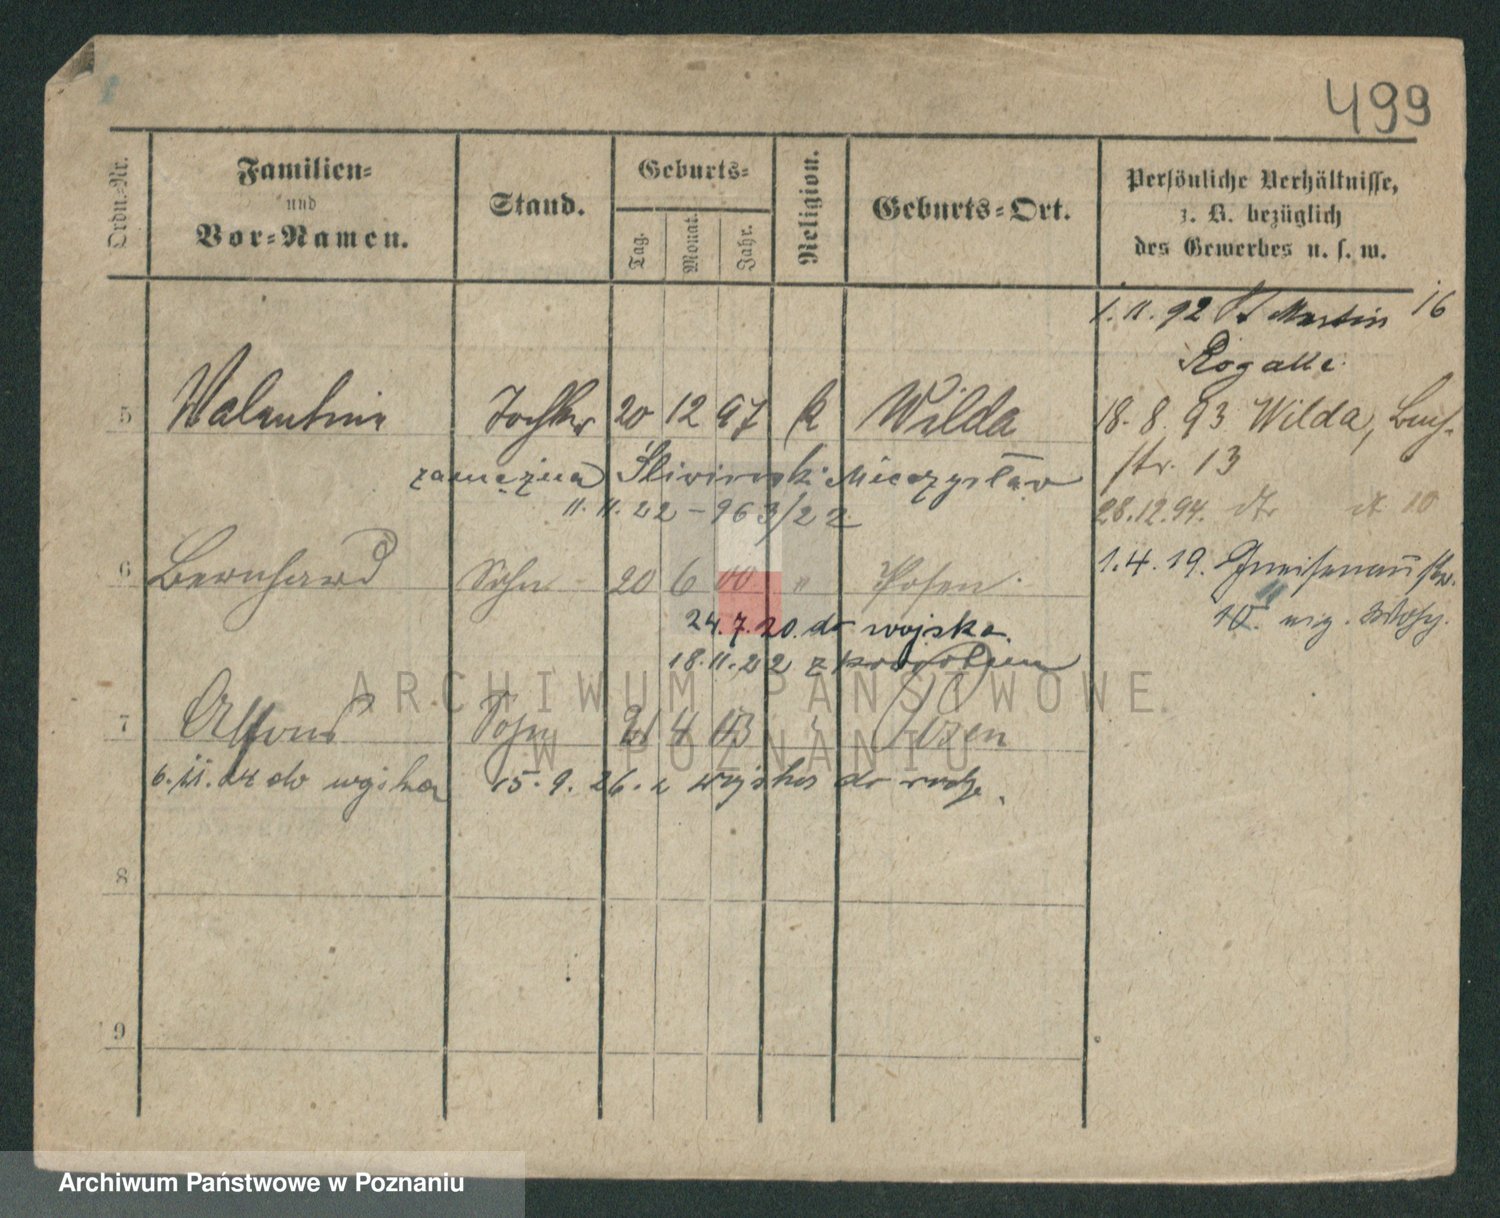 499
Ordn.-Nr.
Familien-
und
Vor-Namen.
Stand.
Geburts-
Tag.
Monat.
Jahr.
Religion.
Geburts-Ort.
Persönliche Verhältnisse,
z. B. bezüglich
des Gewerbes u. s. w.
1.11.92 St Martin 16
Rogalle
5 Valentine Tochter 20 12 97 k Wilda
18.8.93 Wilda, Buch-
str. 13
zamężna Śliwiński Mieczysław
11.11.22 – 963/22
28.12.94. 10
6 Bernhard Sohn 20 6 00 " Posen
1.4.19. Gneisenau str.
10
24.7.20. do wojska
18.11.22 z powrotem
7 Alfons Sohn 21 4 03 " Posen
6.11.24 do wojska 15.9.26. z wojska do
8
9
ARCHIWUM PAŃSTWOWE
W POZNANIU
Archiwum Państwowe w Poznaniu